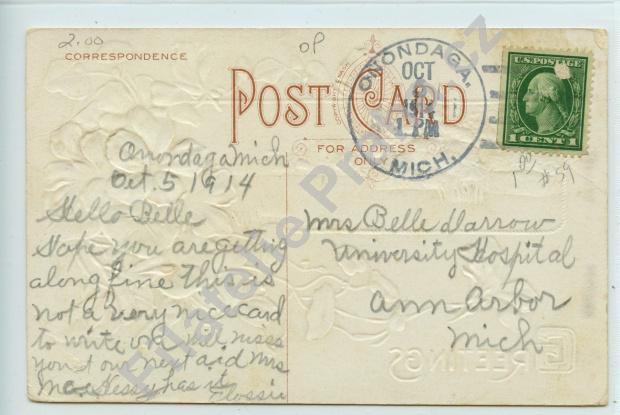 2.00
OP
CORRESPONDENCE
POST CARD
FOR ADDRESS
ONLY
ONONDAGA.
OCT
1914
1 PM
MICH.
U.S. POSTAGE
1 CENT 1
1 00
#59
Onondaga Mich
Oct. 5 1914
Hello Belle
Hope you are getting
along fine this is
not a very nice card
to write on will
you on next aid Mrs
has it
Flossie
Mrs Belle Darrow
University Hospital
Ann Arbor
Mich
GREETINGS